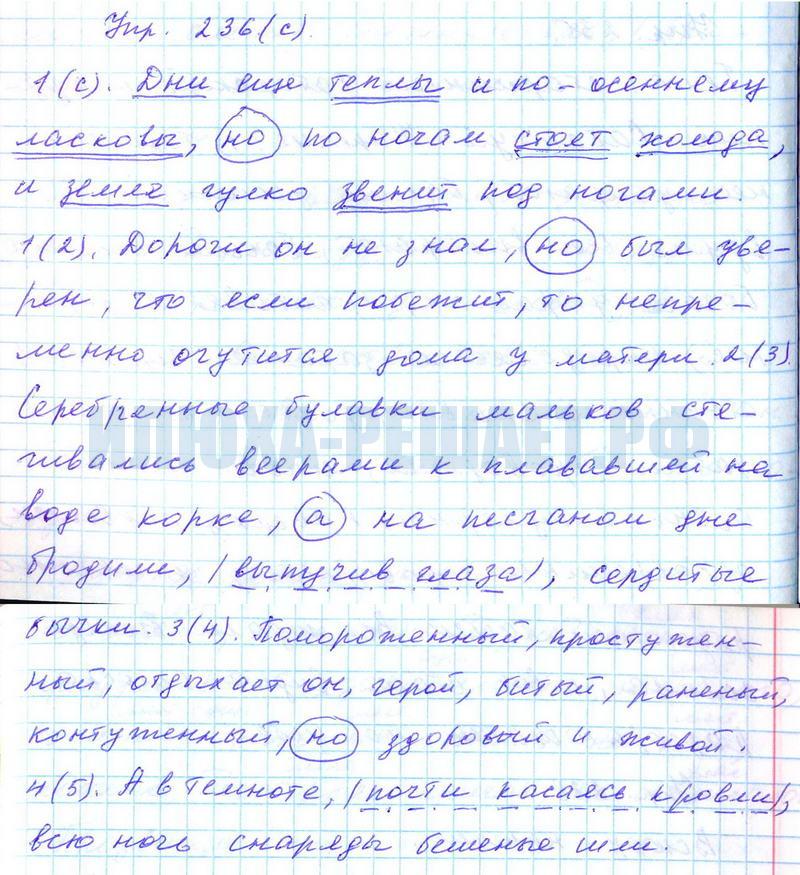 Упр. 236(с).
1(с). Дни еще теплы и по-осеннему
ласковы, но по ночам стоят холода,
и земля гулко звенит под ногами.
1(2). Дороги он не знал, но был уве-
рен, что если побежит, то непре-
менно очутится дома у матери. 2(3).
Серебренные булавки мальков стя-
гивались веерами к плававшей на
воде корке, а на песчаном дне
бродили, |выпучив глаза|, сердитые
бычки. 3(4). Помороженный, простужен-
ный, отдыхает он, герой, битый, раненый,
контуженный, но здоровый и живой.
4(5). А в темноте, |почти касаясь кровли|,
всю ночь снаряды бешеные шли.
ИЛЮХА-РЕШАЕТ.РФ